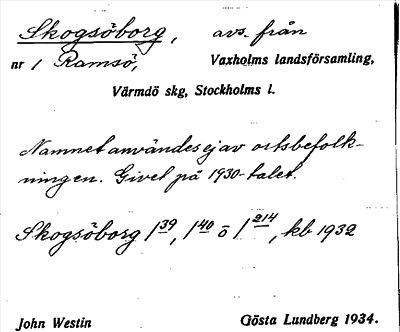 Skogsöborg, avs. från
nr 1 Ramsö, Vaxholms landsförsamling,
Värmdö skg, Stockholms l.
Namnet användes ej av ortsbefolk-
ningen. Givet på 1930-talet.
Skogsöborg 1 39, 1 40 o 1 214, kb 1932
John Westin Gösta Lundberg 1934.